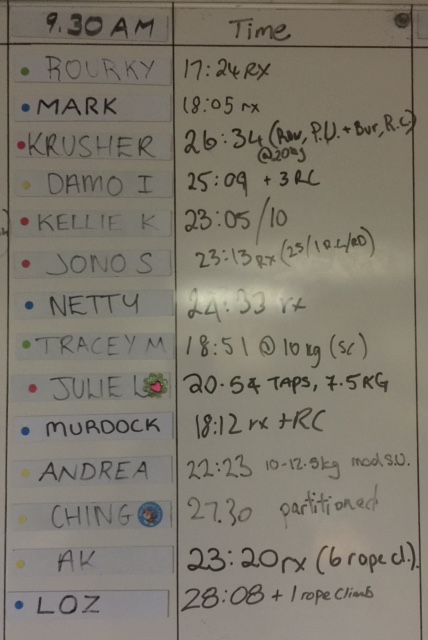 9.30 AM Time
ROURKY 17:24 RX
MARK 18:05 rx
KRUSHER 26:34 (Row, P.U. + Bur, R.C)
@20kg
DAMO I 25:09 + 3 RC
KELLIE K 23:05/10
JONO S 23:13 RX (25/1 R.C/RD)
NETTY 24:33 rx
TRACEY M 18:51 @ 10 kg (SC)
JULIE L 20.54 TAPS, 7.5KG
MURDOCK 18:12 rx + RC
ANDREA 22:23 10-12.5kg mod S.U.
CHING 27.30 partitioned
AK 23:20 rx (6 rope cl.).
LOZ 28:08 + 1 rope climb